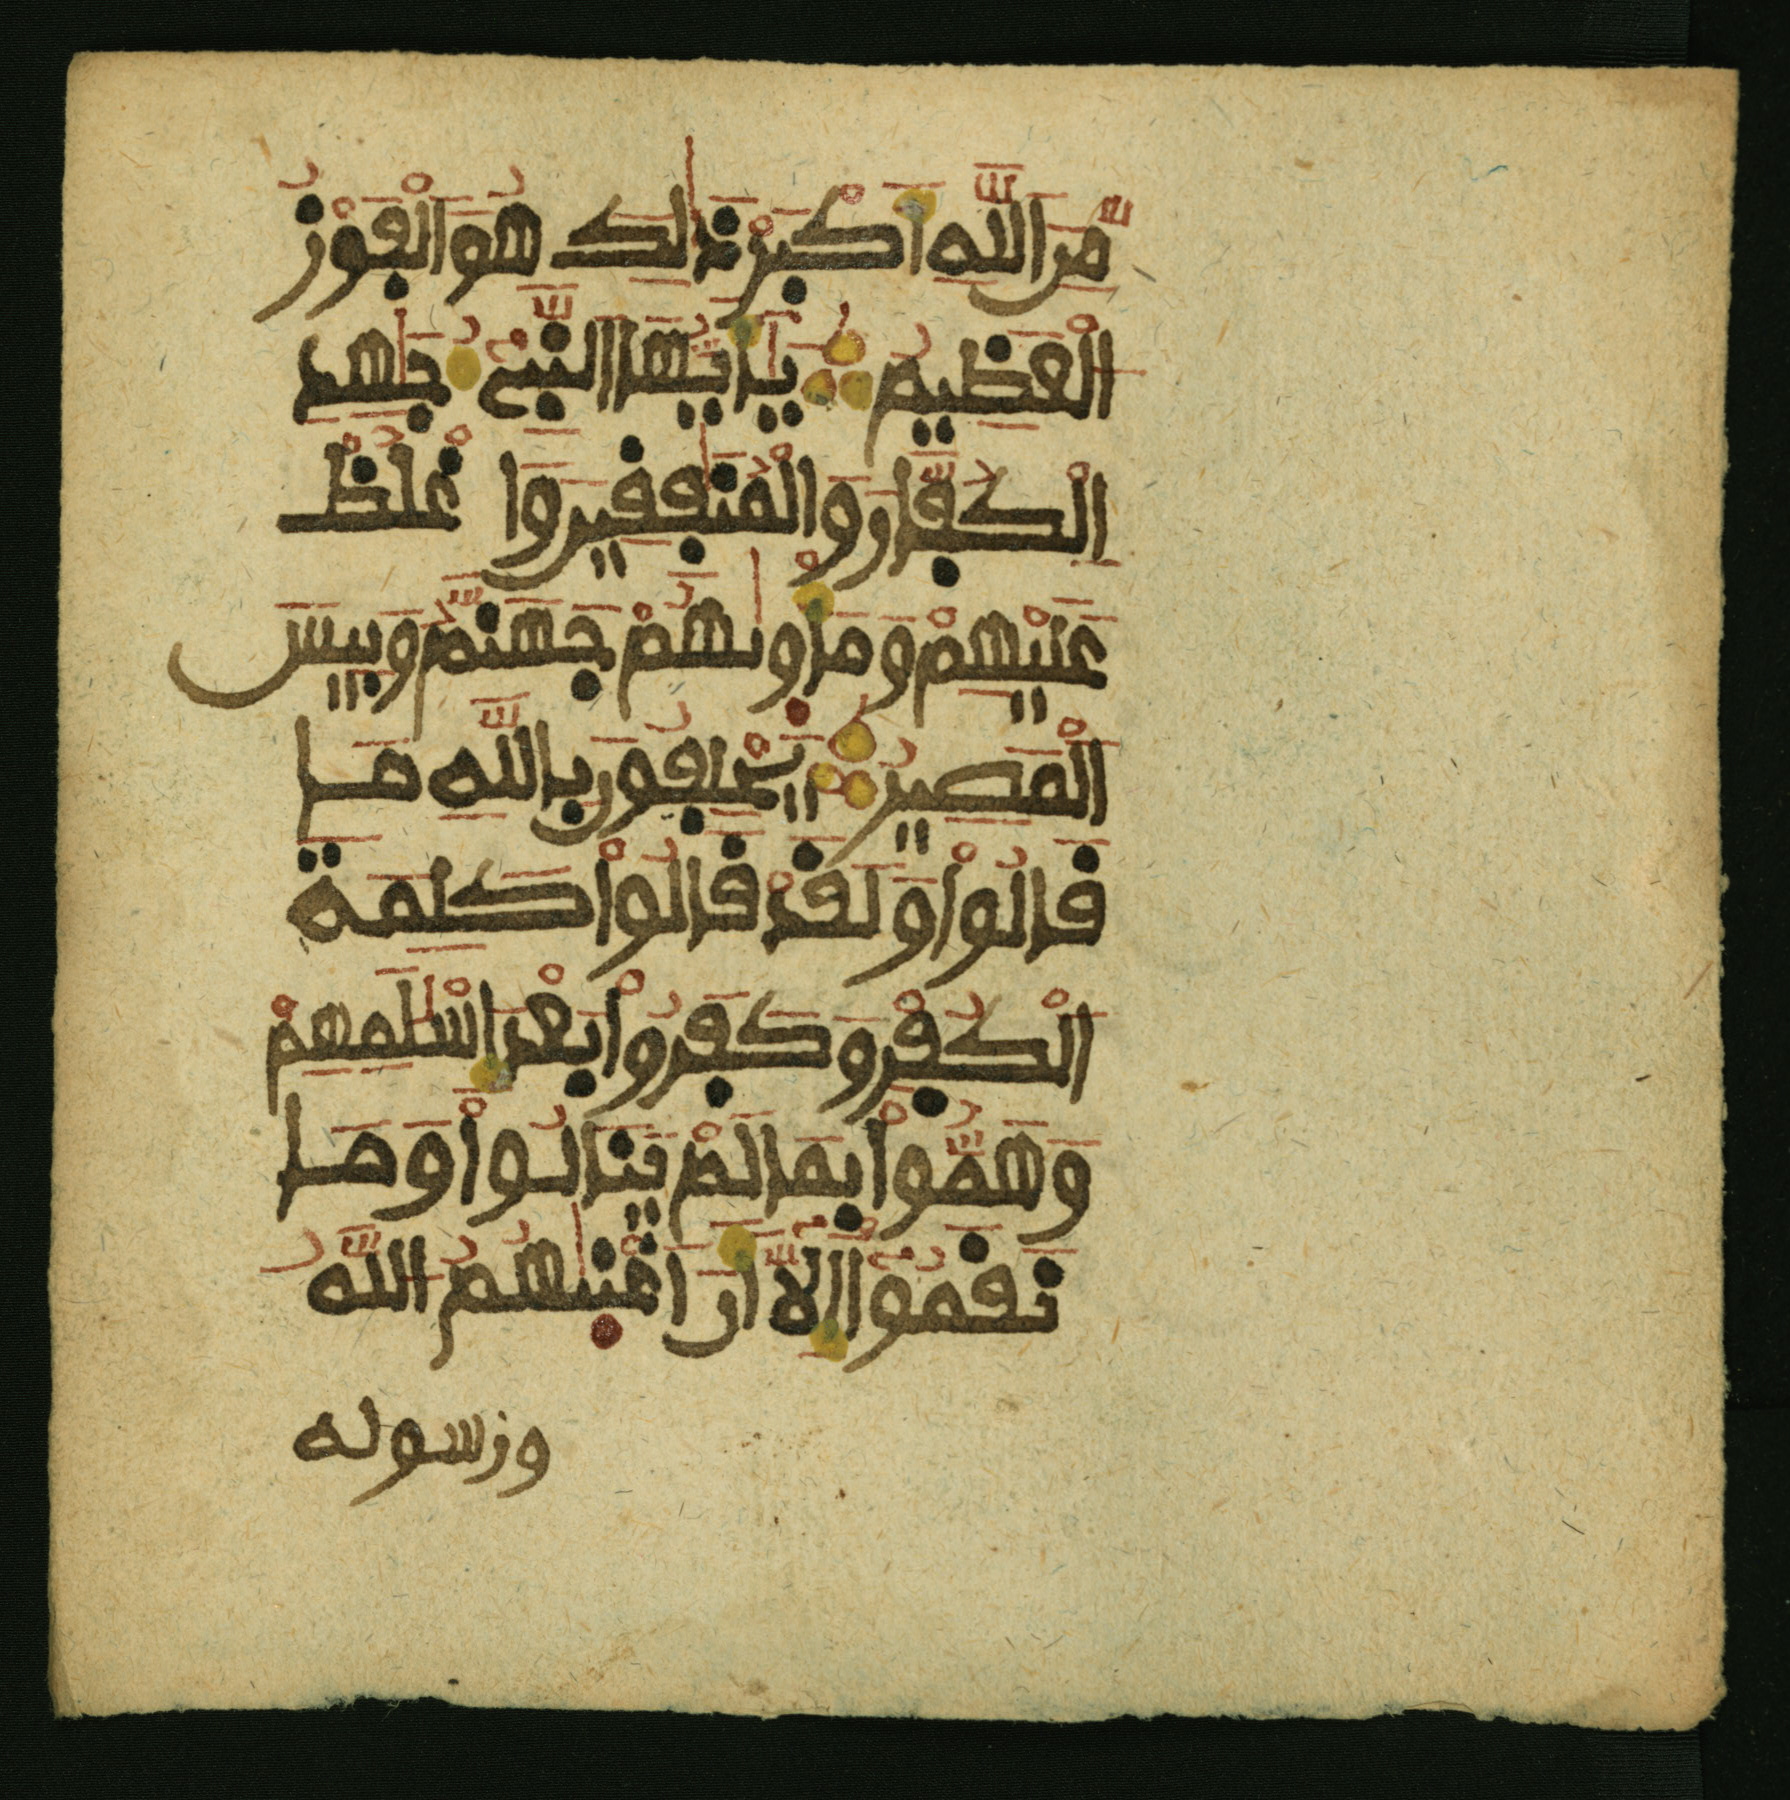 مِّنَ اللَّهِ أَكْبَرُ ذَٰلِكَ هُوَ الْفَوْزُ
الْعَظِيمُ يَٰأَيُّهَا النَّبِيءُ جَٰهِدِ
الْكُفَّارَ وَالْمُنَٰفِقِينَ وَاغْلُظْ
عَلَيْهِمْ وَمَأْوَىٰهُمْ جَهَنَّمُ وَبِيسَ
الْمَصِيرُ يَحْلِفُونَ بِاللَّهِ مَا
قَالُواْ وَلَقَدْ قَالُواْ كَلِمَةَ
الْكُفْرِ وَكَفَرُواْ بَعْدَ إِسْلَٰمِهِمْ
وَهَمُّواْ بِمَا لَمْ يَنَالُواْ وَمَا
نَقَمُواْ إِلَّا أَنْ أَغْنَىٰهُمُ اللَّهُ
ورسوله